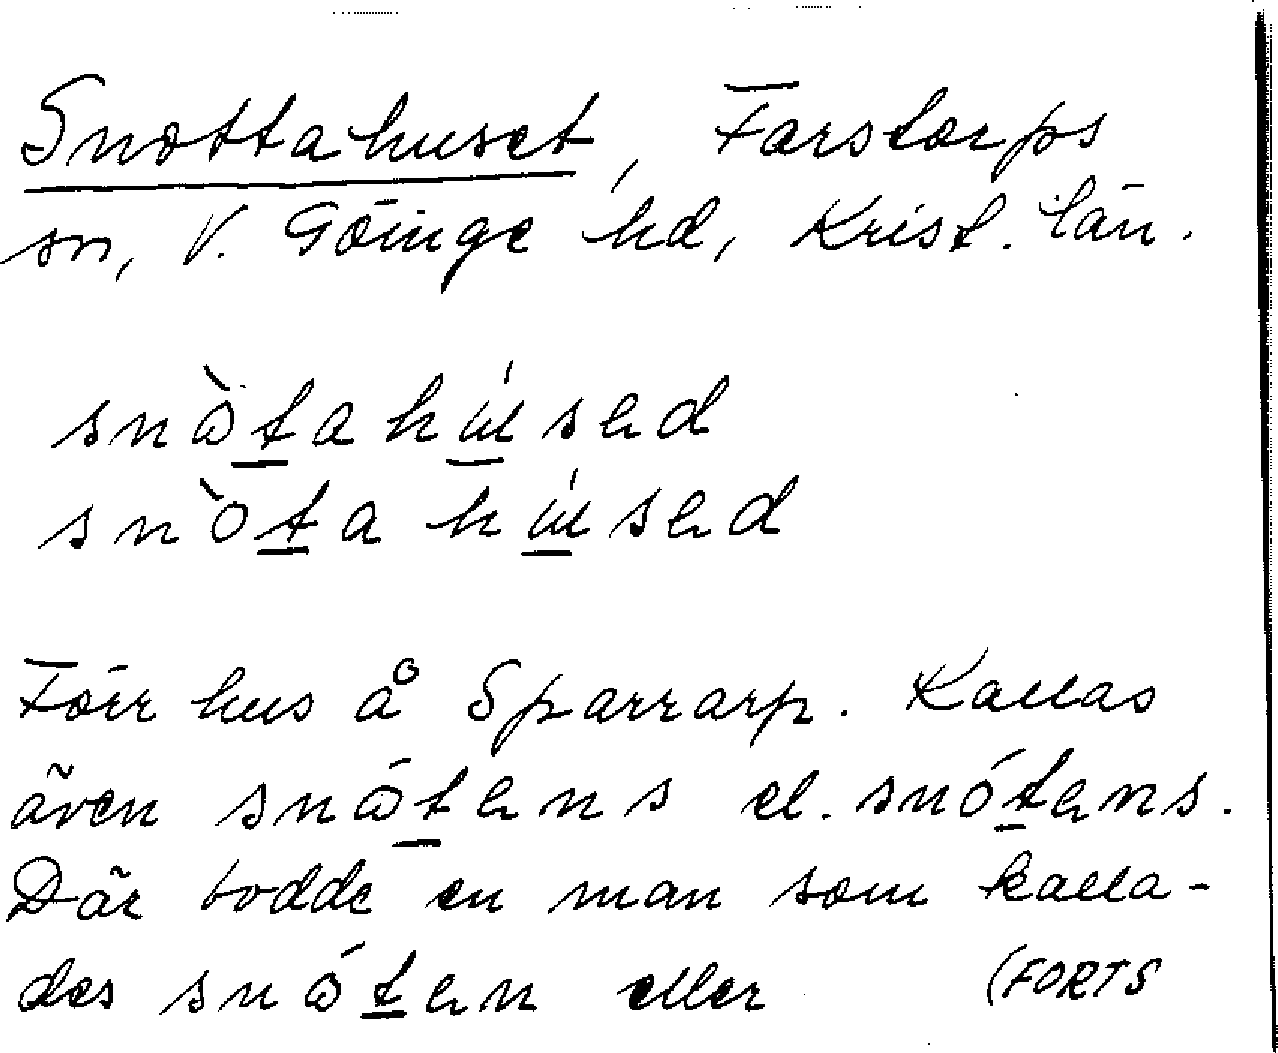 Snottahuset, Farstorps
sn, V. Göinge hd, Krist. län.
snὼt̲ahú̲sed
snòt̲a hú̲sed
Förr hus å Sparrarp. Kallas
även snώt̲ens el. snót̲ens.
Där bodde en man som kalla-
des snώt̲en eller (FORTS